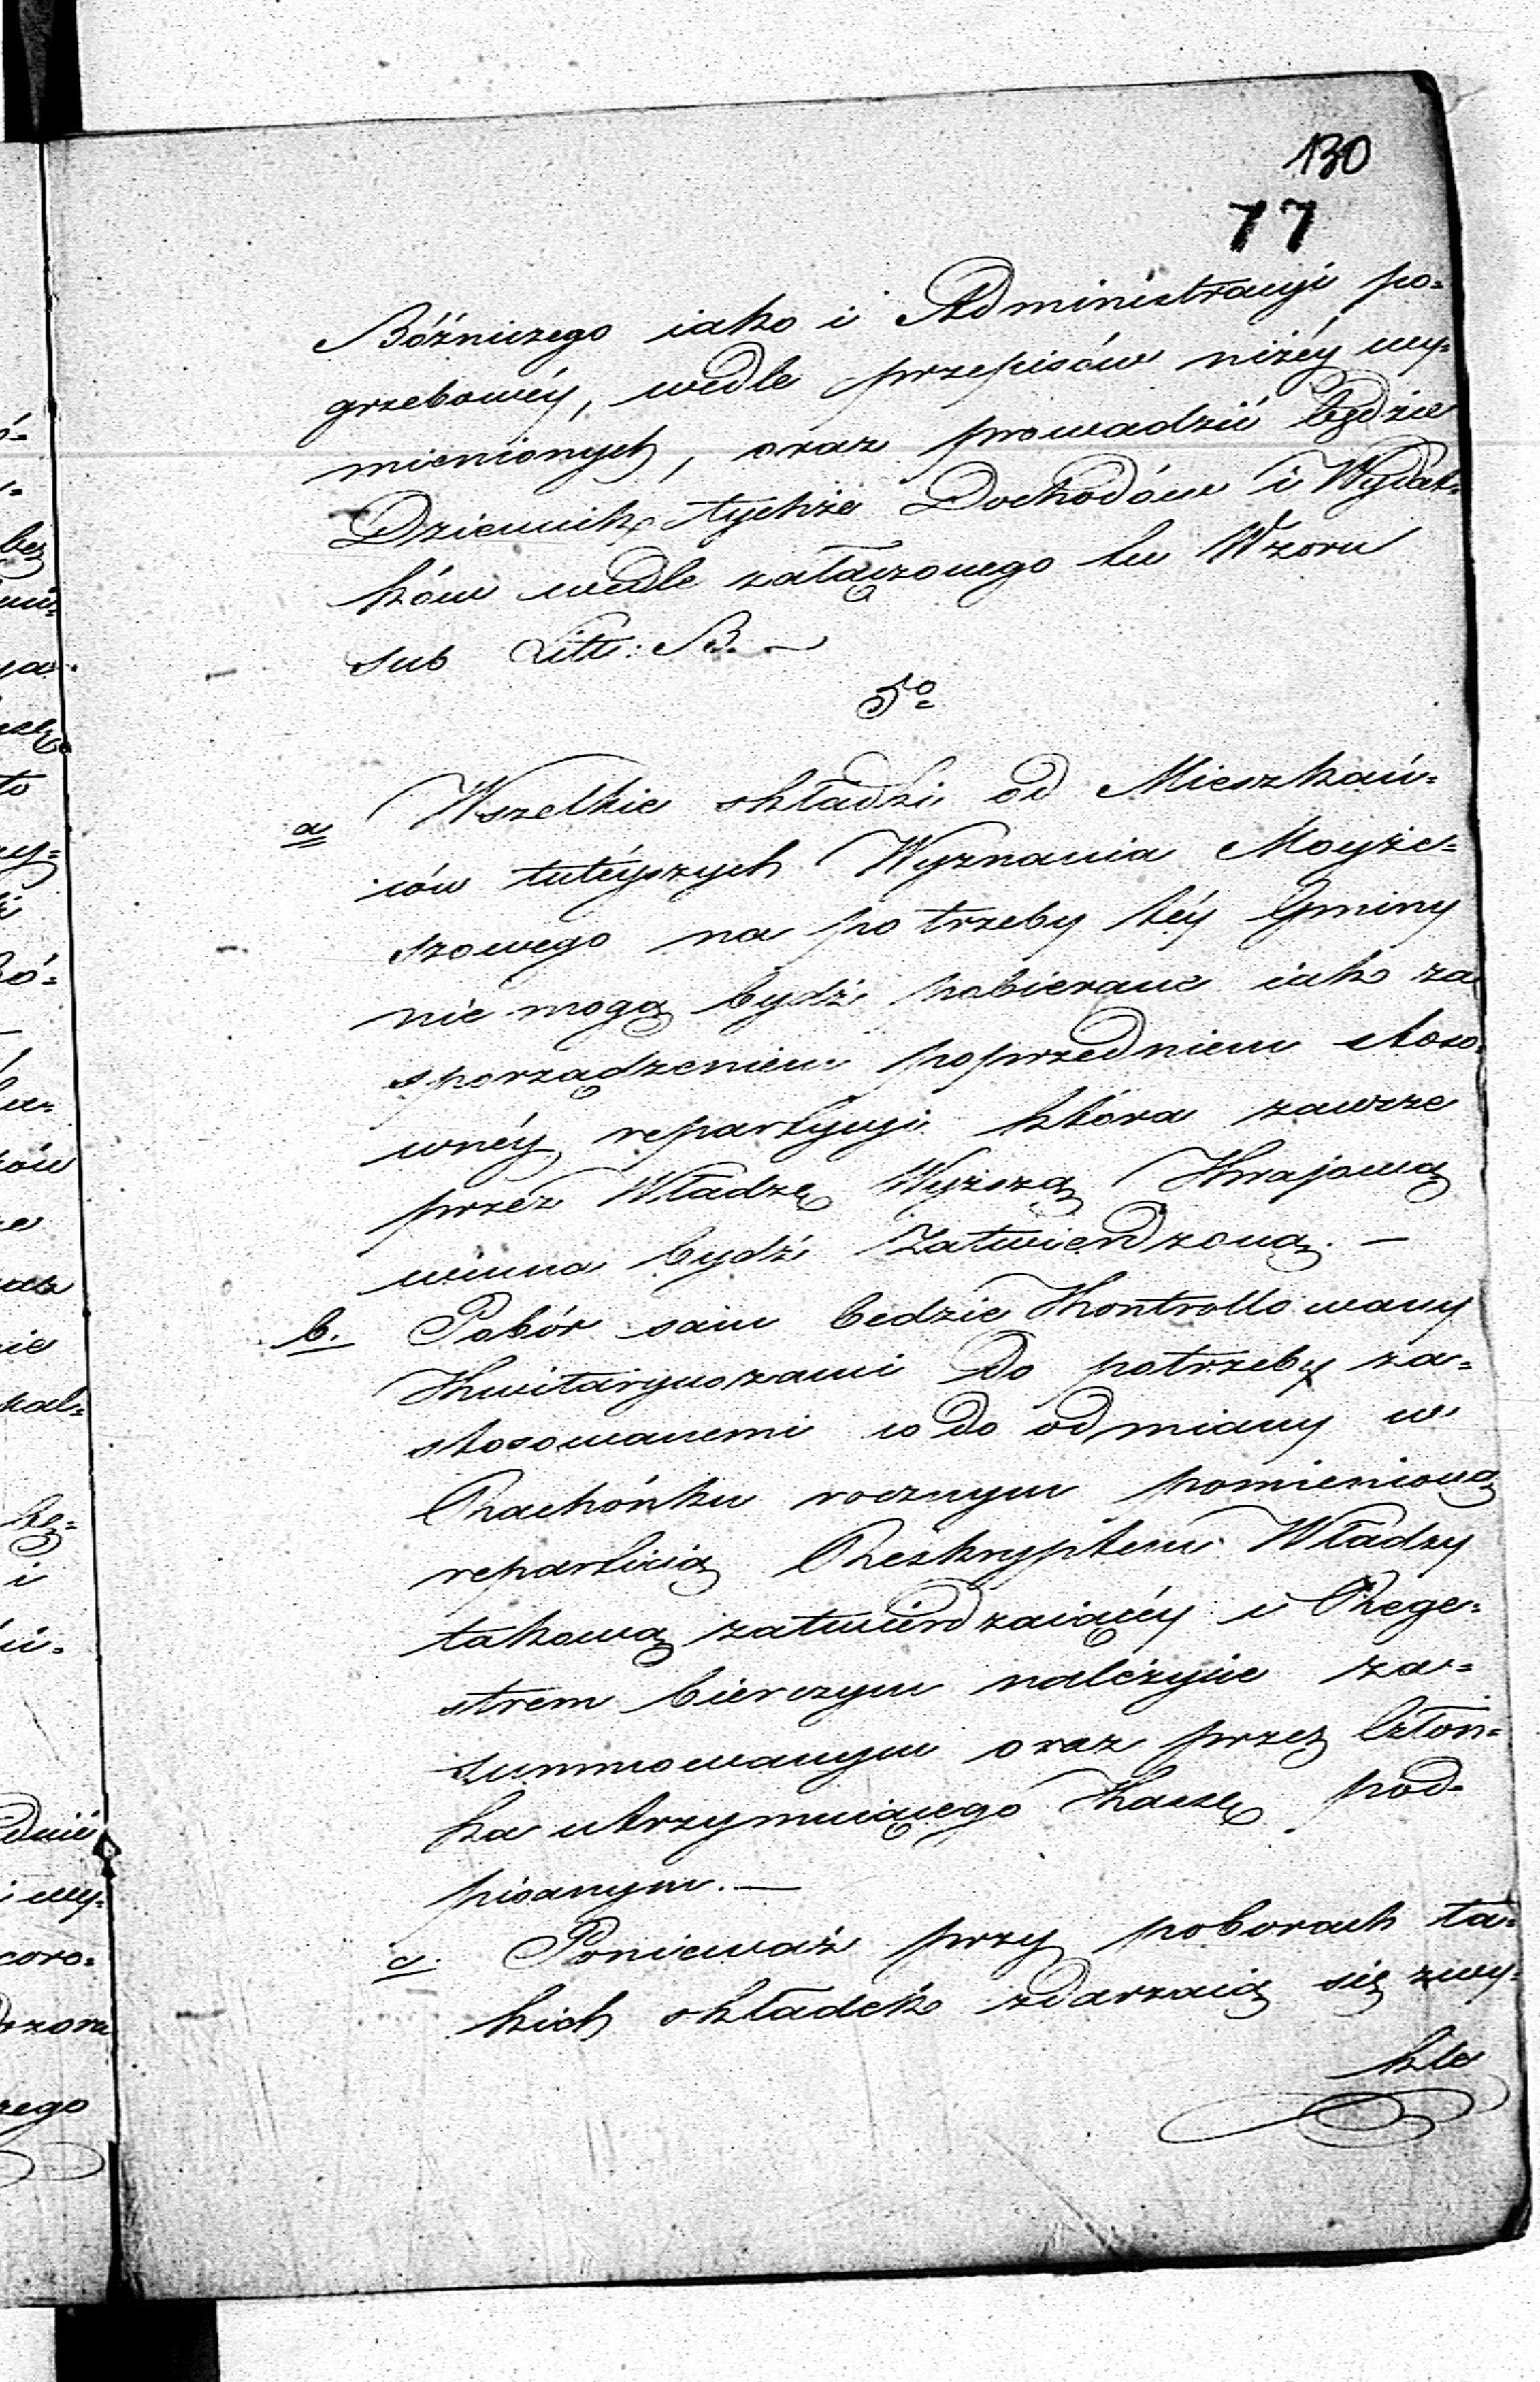 130
77
Bóżniczego iako i Administracyi po=
grzebowéy, wedle przepisów niżéy wy=
mienionych, oraz prowadzić będzie
Dziennik tychże Dochodów i Wydat=
ków wedle załączonego tu Wzoru
sub Litt: B. —
5o
a Wszelkie składki od Mieszkań=
ców tutéyszych Wyznania Moyże=
szowego na potrzeby téy Gminy
nie mogą bydź pobierane iak za
sporządzeniem poprzedniem stoso=
wnéy repartycyi która zawsze
przez Władzę Wyższą Krajową
winna bydź Zatwierdzoną. —
b. Pobór sam bedzie Kontrollowany
Kwitaryuszami do potrzeby za=
stosowanemi co do odmiany w
Rachónku rocznym pomienioną
reparticią Reskryptem Władzy
takową zatwierdzaiącéy i Rege=
strem bierczym należycie za=
summowanym oraz przez Człon=
ka utrzymuiącego Kassę pod=
pisanym. —
c. Ponieważ przy poborach ta=
kich składek zdarzaią się zwy=
kle